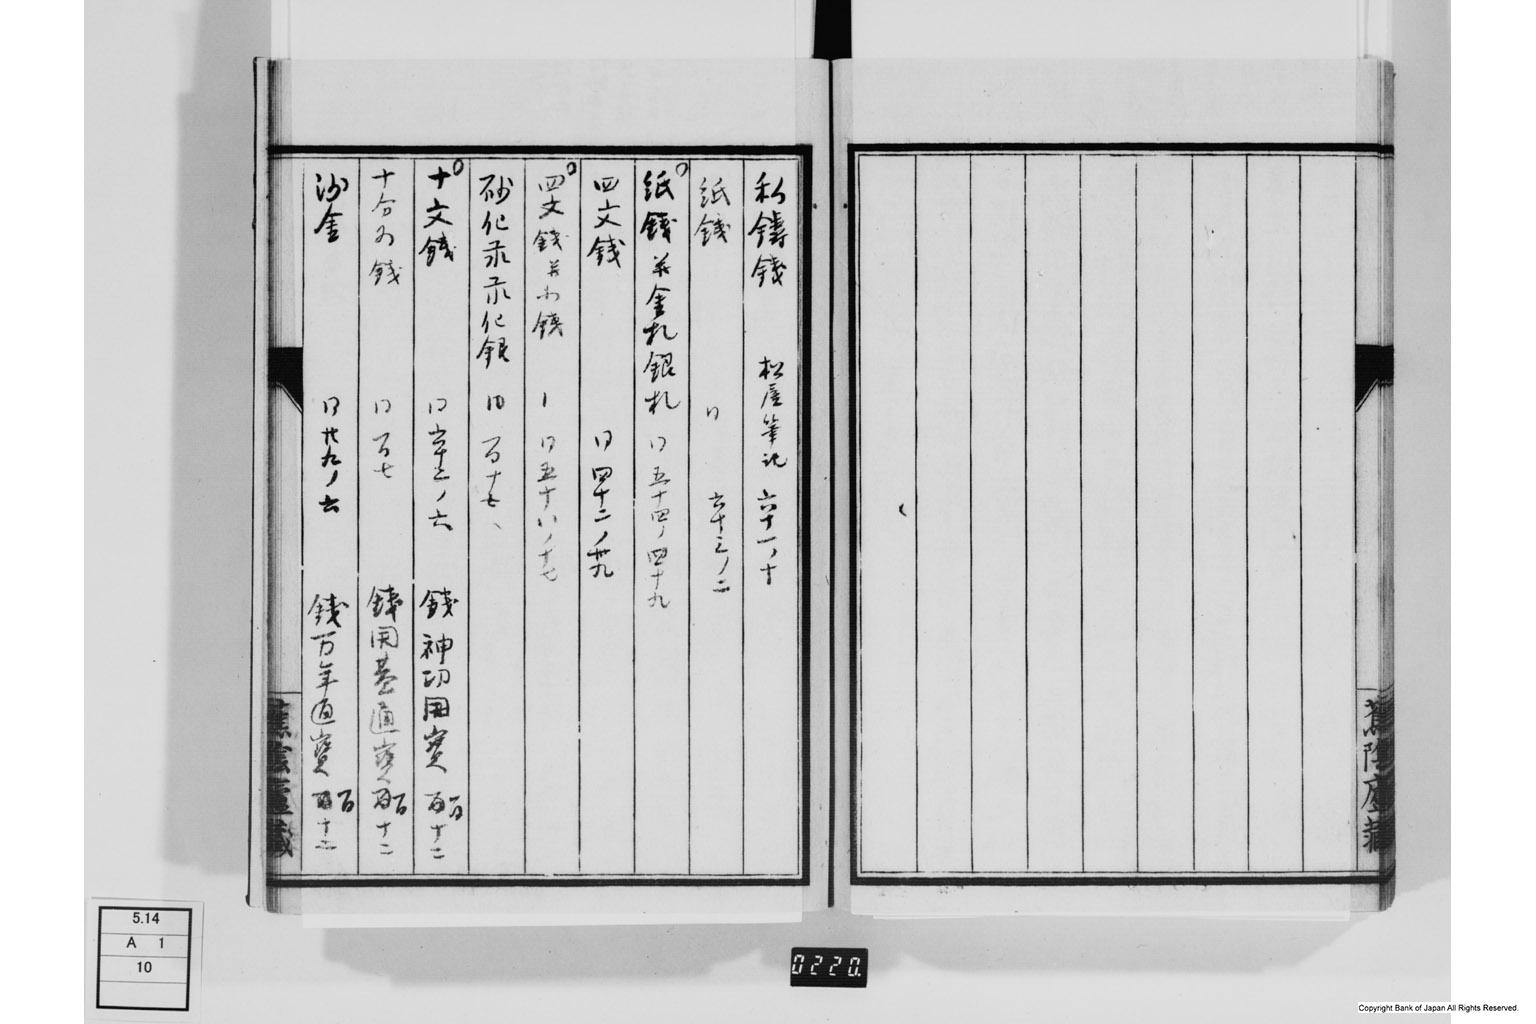 私鑄錢 松屋筆記 六十一ノ十
紙錢 同 六十三ノ二
紙錢并金札銀札 同 五十四ノ四十九
四文錢 同 四十二ノ卅九
四文錢并小錢 同 五十八ノ十七
砂化
十文錢 同 六 錢 神功開寶 百十二
錢 同 百七 錢 開基通寶 百十二
沙金 同 廿九ノ六 錢 万年通寶 百十二
蕉陰廬藏
5.14
A 1
10
0220.
Copyright Bank of Japan All Rights Reserved.